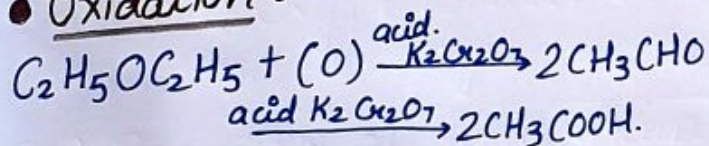 • Oxidation
C2H5OC2H5 + (O) acid. K2Cr2O7 → 2CH3CHO
acid K2Cr2O7 → 2CH3COOH.